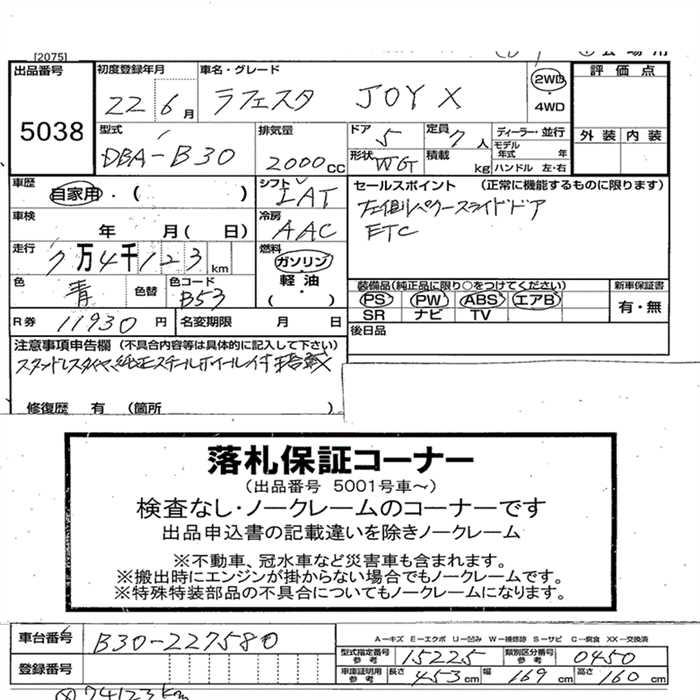 [2075]
出品番号
5038
初度登録年月
22 6月
車名・グレード
ラフェスタ JOY X
2WD
・
4WD
評価点
外装 内装
型式
DBA-B30
排気量
2000cc
ドア 5
定員 7人
形状 WGT
積載 kg
ディーラー・並行
モデル年式 年
ハンドル 左・右
車歴
自家用・( )
シフト IAT
車検
年 月( 日)
冷房 AAC
走行
7万4千123km
燃料
ガソリン
・
軽油
( )
色
青
色替
色コード
B53
R券 11930円
名変期限 月 日
セールスポイント (正常に機能するものに限ります)
左側パワースライドドア
ETC
装備品(純正品に限り○をつけてください)
PS PW ABS エアB
SR ナビ TV
新車保証書
有・無
後日品
注意事項申告欄(不具合内容等は具体的に記入して下さい)
スタッドレスタイヤ、純正スチールホイール付
修復歴 有 (箇所 )
落札保証コーナー
(出品番号 5001号車～)
検査なし・ノークレームのコーナーです
出品申込書の記載違いを除きノークレーム
※不動車、冠水車など災害車も含まれます。
※搬出時にエンジンが掛からない場合でもノークレームです。
※特殊特装部品の不具合についてもノークレームになります。
車台番号 B30-227580
登録番号
A－キズ E－エクボ U－凹み W－補修跡 S－サビ C－腐食 XX－交換済
型式指定番号 参考 15225
類別区分番号 参考 0450
車庫証明用 参考 長さ 453cm 幅 169cm 高さ 160cm
74123km